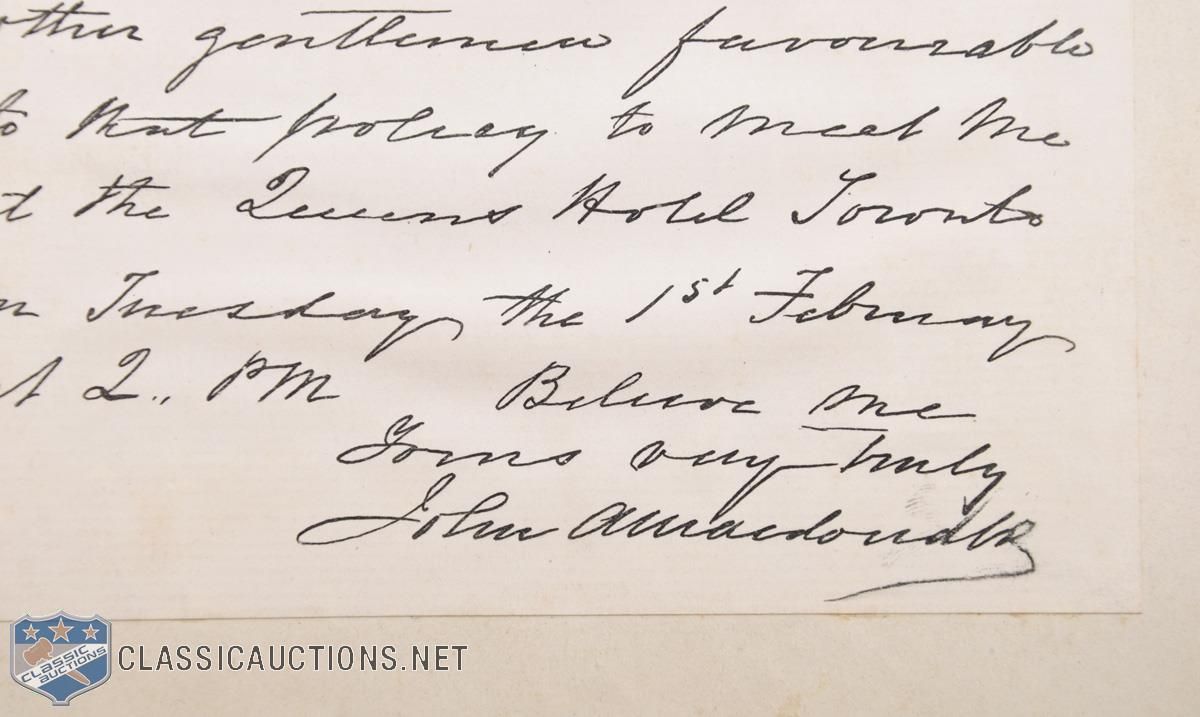 other gentlemen favourable
to that policy to meet me
at the Queens Hotel Toronto
on Tuesday the 1st February
at 2., PM Believe me
Yours very truly
John A Macdonald
CLASSIC AUCTIONS
CLASSICAUCTIONS.NET